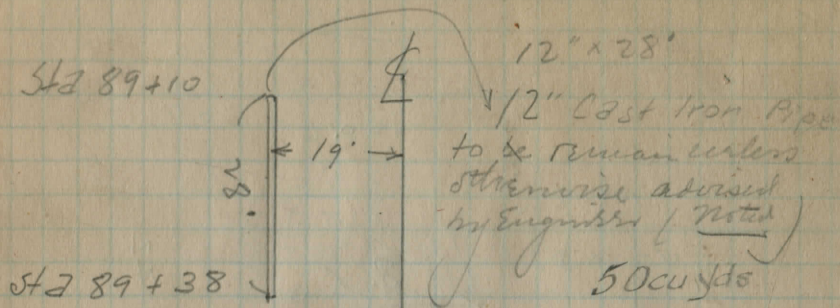 12" x 28'
Sta 89+10
12" Cast Iron Pipe
19'
to be remain unless
otherwise advised
by Engineer (Noted)
Sta 89+38
50 cu yds